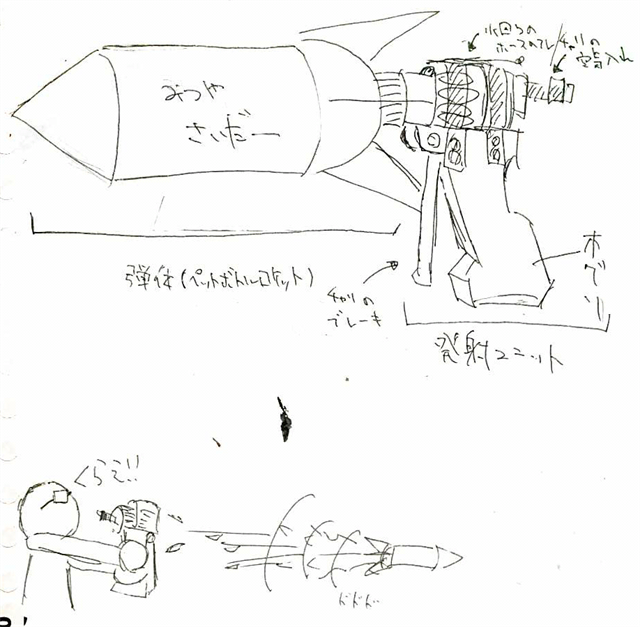 水回りの
ホースのアレ
チャリの
空気入れ
みつや
さいだー
弾体(ペットボトルロケット)
チャリの
ブレーキ
木グリ
発射ユニット
くらえ!!
ドドド